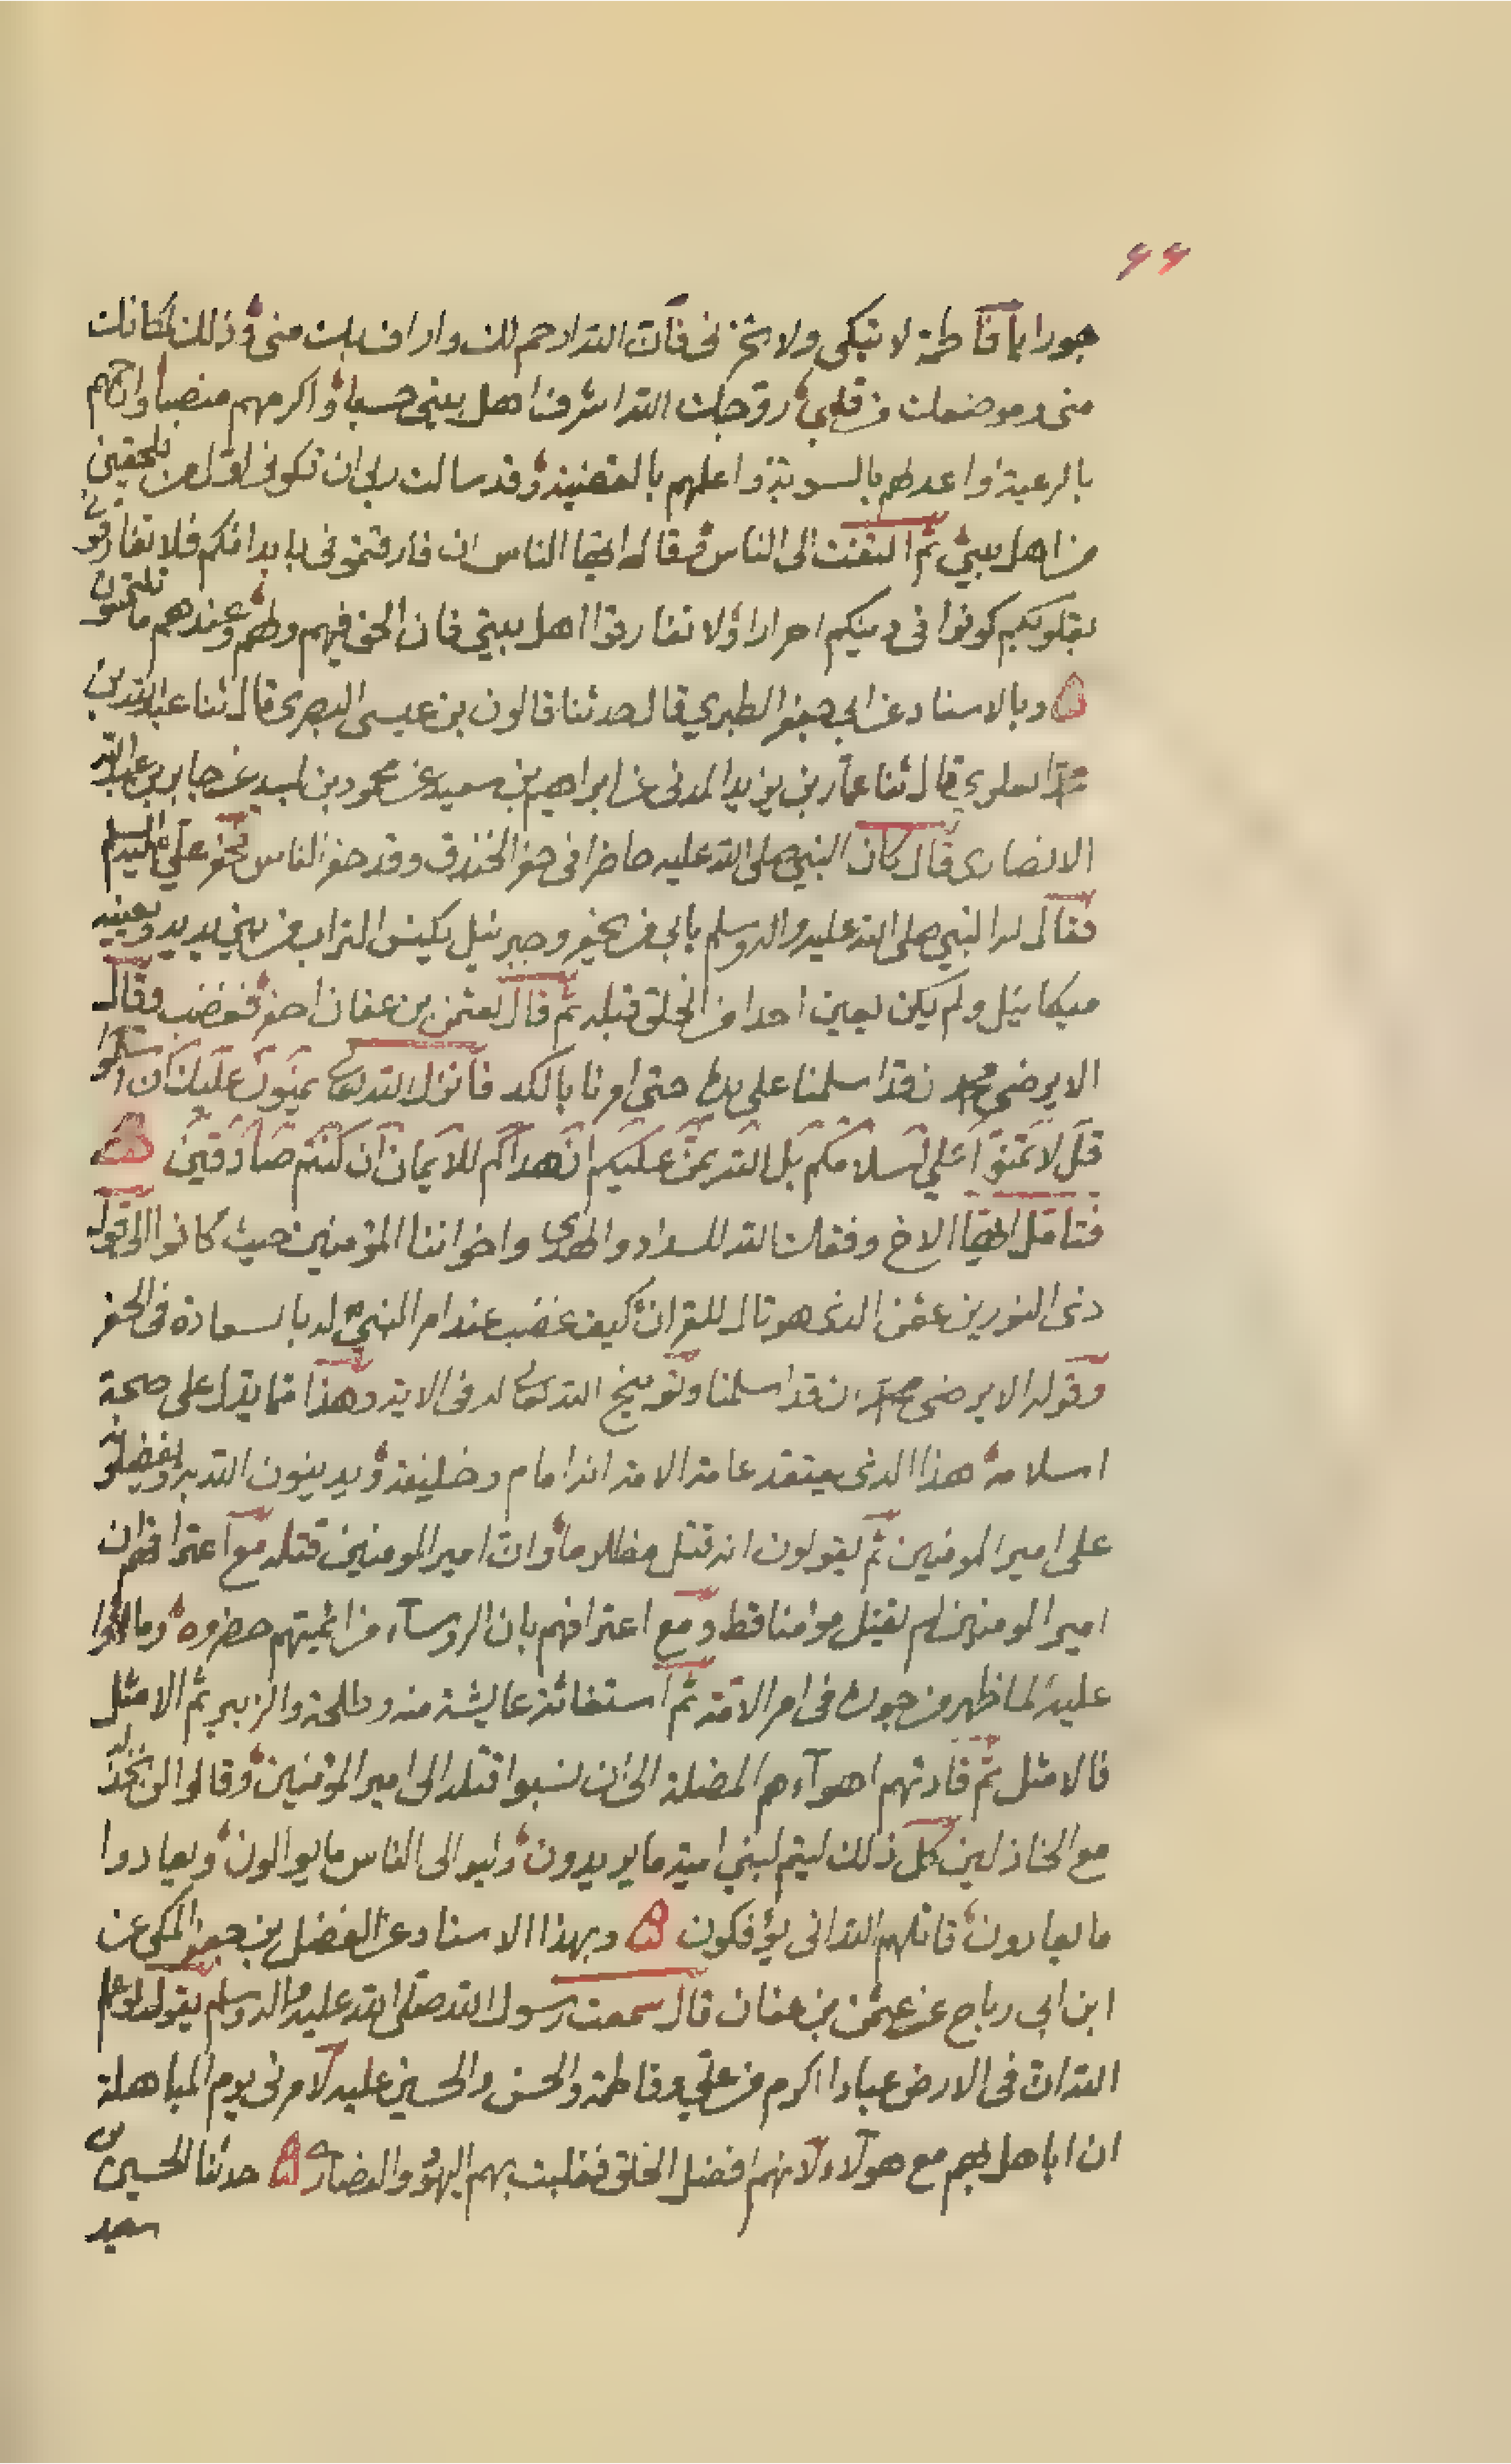 ٤٤
جورا يا فاطمة لا تبكى ولا تحزنى فان الله ارحم لك واراف بك منى وذلك لمكانك
منى وموضعك من قلبي زوجك الله اشرف اهل بيتى حسبا واكرمهم منصبا وارحمهم
بالرعية واعدلهم بالسوية واعلمهم بالقضية وقد سالت ربى ان تكونى اول من تلحقين
من اهل بيتي ثم التفت الى الناس فقال ايها الناس ان فارقتمونى بابدانكم فلا تفارقونى
بقلوبكم كونوا فى دينكم احرارا ولا تفارقوا اهل بيتي فان الحق فيهم ولهم وعندهم ما تلتمسون
وبالاسناد عن ابي جعفر الطبري قال حدثنا قالون بن عيسى البصرى قال ثنا عبد الله بن
محمد العلوي قال ثنا عمار بن يزيد المدنى عن ابراهيم بن سعيد عن محمود بن لبيد عن جابر بن عبد الله
الانصارى قال كان النبي صلى الله عليه حاضرا فى حفر الخندق وقد حفر الناس وحفر علي عليه السلم
فقال له النبي صلى الله عليه واله وسلم بابى من يحفر وجبرئيل يكنس التراب من بين يديه ويعينه
ميكائيل ولم يكن يعين احدا من الخلق قبله ثم قال لعثمن بن عفان احفر فغضب وقال
الا يرضى محمد ان قد اسلمنا على يده حتى امرنا بالكد فانزل الله تعالى يمنون عليك ان اسلموا
قل لا تمنوا علي اسلامكم بل الله يمن عليكم ان هداكم للايمان ان كنتم صادقين
فتامل ايها الاخ وفقك الله للسداد والهدى واخواننا المؤمنين حيث كانوا الى قول
ذى النورين عثمن الذى هو تال للقران كيف غضب عند امر النبي له بالسعادة فى الحفر
وقوله الا يرضى محمد ان قد اسلمنا وتوبيخ الله تعالى له فى الاية وهذا مما يدل على صحة
اسلامه هذا الذى يعتقد عامة الامة انه امام وخليفة ويدينون الله به ويفضلونه
على امير المومنين ثم يقولون انه قتل مظلوما وان امير المومنين قتله مع اعترافهم ان
امير المومنين لم يقتل مؤمنا قط ومع اعترافهم بان الروسآء من ائمتهم حضروه ومالؤا
عليه لما ظهر من جوره فى امر الامة ثم استغاثة عايشة منه وطلحة والزبير ثم الامثل
فالامثل ثم قادتهم اهوآءهم المضلة الى ان نسبوا قتله الى امير المؤمنين وقالوا له بخذله
مع الخاذلين كل ذلك ليتم لبني امية ما يريدون وليوالى الناس ما يوالون ويعادوا
ما يعادون قاتلهم الله انى يؤفكون وبهذا الاسناد عن الفضل بن جعفر المكى عن
ابن ابى رباح عن عثمن بن عفان قال سمعت رسول الله صلى الله عليه واله وسلم يقول لو علم
الله ان فى الارض عبادا اكرم من علي وفاطمة والحسن والحسين عليه لامرنى يوم المباهلة
ان اباهل بهم مع هولآء لانهم افضل الخلق فغلبت بهم اليهود والنصارى حدثنا الحسين بن
سعيد